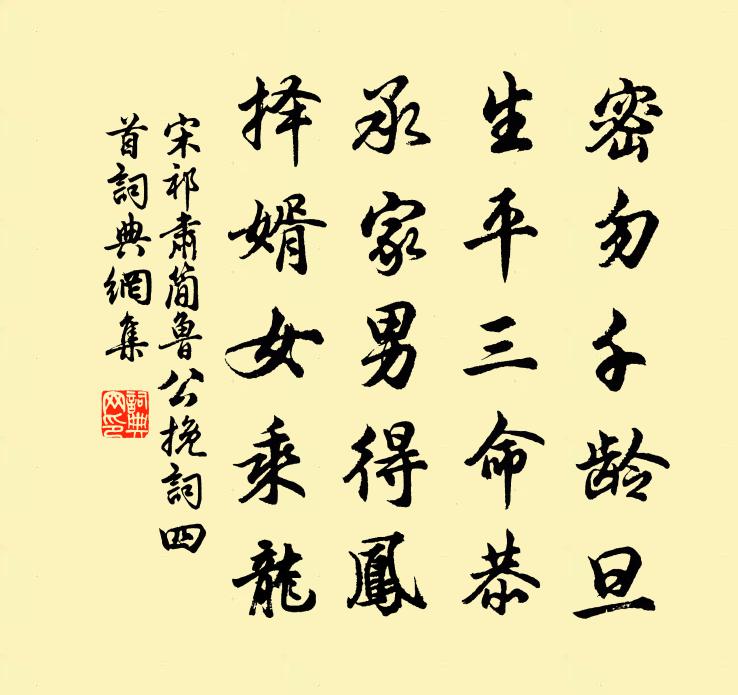 密勿千龄旦
生平三命恭
承家男得鳳
择婿女乘龍
宋祁肅簡魯公挽詞四
首詞典網集
詞典
网印